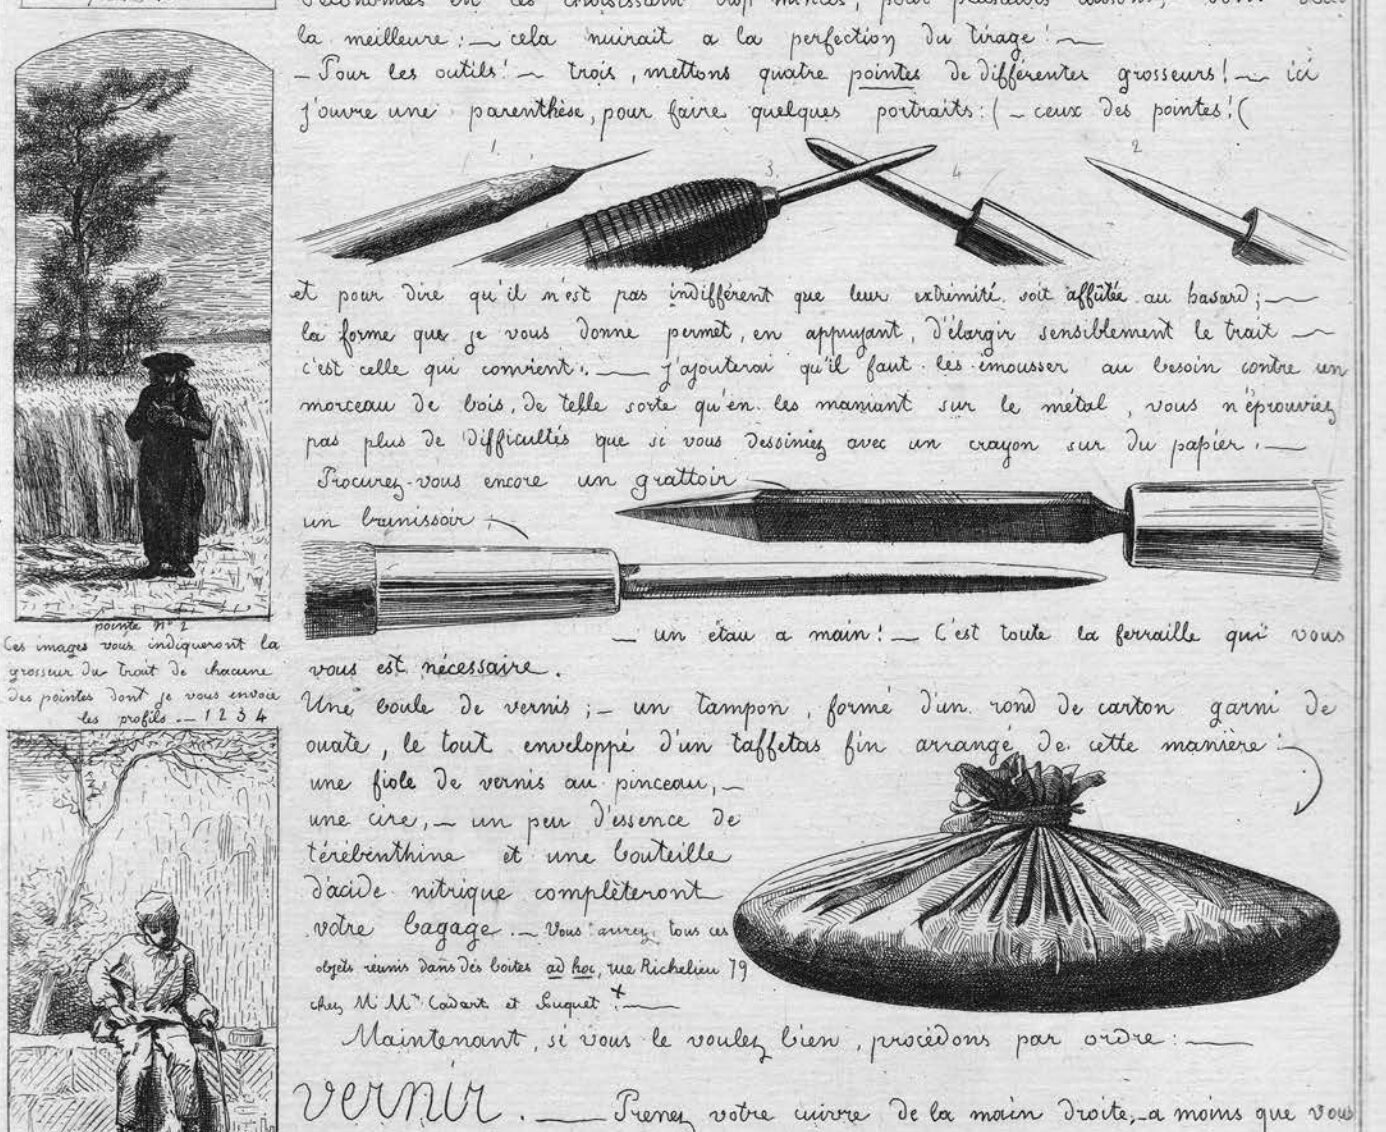 la meilleure : — cela nuirait a la perfection du tirage ! —
— Pour les outils ! — trois, mettons quatre pointes de différentes grosseurs ! — ici
j'ouvre une parenthèse, pour faire quelques portraits : ( — ceux des pointes ! (
1 3 4 2
et pour dire qu'il n'est pas indifférent que leur extrémité soit affûtée au hasard ; —
la forme que je vous donne permet, en appuyant, d'élargir sensiblement le trait —
c'est celle qui convient. — j'ajouterai qu'il faut les émousser au besoin contre un
morceau de bois, de telle sorte qu'en les maniant sur le métal, vous n'éprouviez
pas plus de difficultés que si vous dessiniez avec un crayon sur du papier. —
Procurez-vous encore un grattoir
un brunissoir ;
— un étau a main ! — C'est toute la ferraille qui vous
vous est nécessaire.
Une boule de vernis ; — un tampon, formé d'un rond de carton garni de
ouate, le tout enveloppé d'un taffetas fin arrangé de cette manière :
une fiole de vernis au pinceau, —
une cire, — un peu d'essence de
térébenthine et une bouteille
d'acide nitrique complèteront
votre bagage. — Vous aurez tous ces
objets réunis dans des boites ad hoc, rue Richelieu 79
chez M. Mrs Cadart et Luquet ! + —
Maintenant, si vous le voulez bien, procédons par ordre : —
Vernir. — Prenez votre cuivre de la main droite, — a moins que vous
pointe No 2
Ces images vous indiqueront la
grosseur du trait de chacune
des pointes dont je vous envoie
les profils — 1 2 3 4